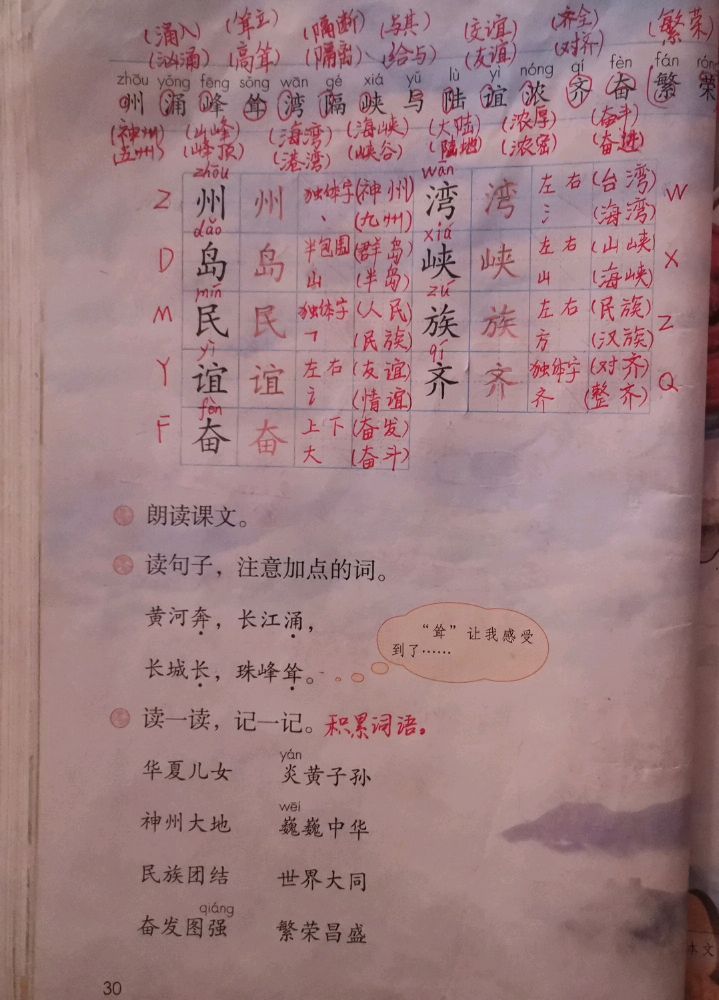 (涌入 (耸立) (隔断) (与其) (交谊) (齐全) (繁荣)
(汹涌) (高耸) (隔离) (给与) (友谊) (对齐)
zhōu yǒng fēng sǒng wān gé xiá yǔ lù yì nóng qí fèn fán róng
州 涌 峰 耸 湾 隔 峡 与 陆 谊 浓 齐 奋 繁 荣
(神州) (山峰) (海湾) (海峡) (大陆) (浓厚) (奋斗)
五州) (峰顶) (港湾) (峡谷) (陆地) (浓密) (奋进)
zhōu wān
Z 州 州 独体字 (神州) 湾 湾 左右 (台湾) W
丶 (九州) 氵 (海湾)
dǎo xiá
D 岛 岛 半包围 (群岛) 峡 峡 左右 (山峡) X
山 (半岛) 山 (海峡)
mín zú
M 民 民 独体字 (人民) 族 族 左右 (民族) Z
㇕ (民族) 方 (汉族)
yì qí
Y 谊 谊 左右 (友谊) 齐 齐 独体字 (对齐) Q
讠 (情谊) 齐 (整齐)
fèn
F 奋 奋 上下 (奋发)
大 (奋斗)
朗读课文。
读句子，注意加点的词。
黄河奔，长江涌，
长城长，珠峰耸。
“耸”让我感受
到了……
读一读，记一记。积累词语。
yán
华夏儿女 炎黄子孙
wēi
神州大地 巍巍中华
民族团结 世界大同
qiáng
奋发图强 繁荣昌盛
30